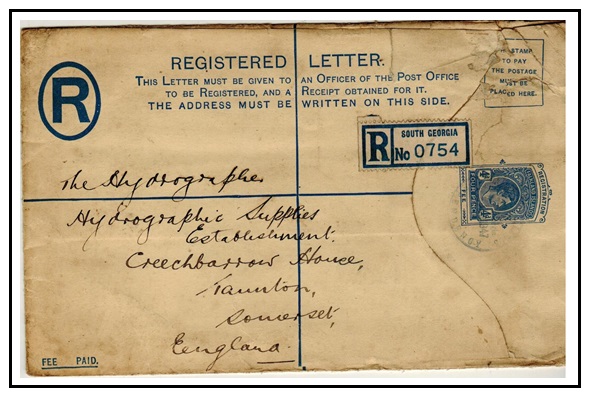 REGISTERED LETTER.
THIS LETTER MUST BE GIVEN TO AN OFFICER OF THE POST OFFICE
TO BE REGISTERED, AND A RECEIPT OBTAINED FOR IT.
THE ADDRESS MUST BE WRITTEN ON THIS SIDE.
R
STAMP
TO PAY
THE POSTAGE
PLACED HERE.
R SOUTH GEORGIA
No 0754
REGISTRATION
FEE
FOUR PENCE
The Hydrographer
Hydrographic Supplies
Establishment.
Creechbarrow House,
Taunton,
Somerset,
England.
FEE PAID.